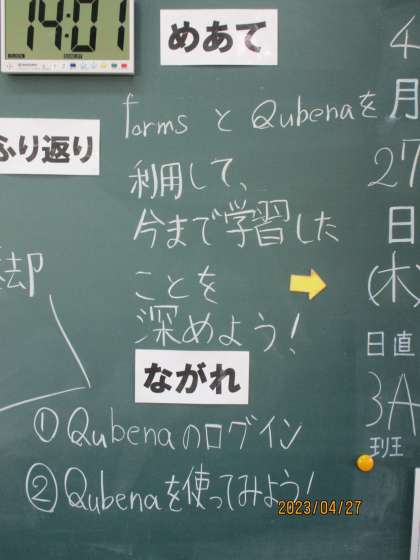 14:01
めあて
forms と Qubenaを
利用して、
今まで学習した
ことを
深めよう！
ふり返り
却
ながれ
①Qubenaのログイン
②Qubenaを使ってみよう！
4
月
27
日
(木)
日直
3A
班
2023/04/27